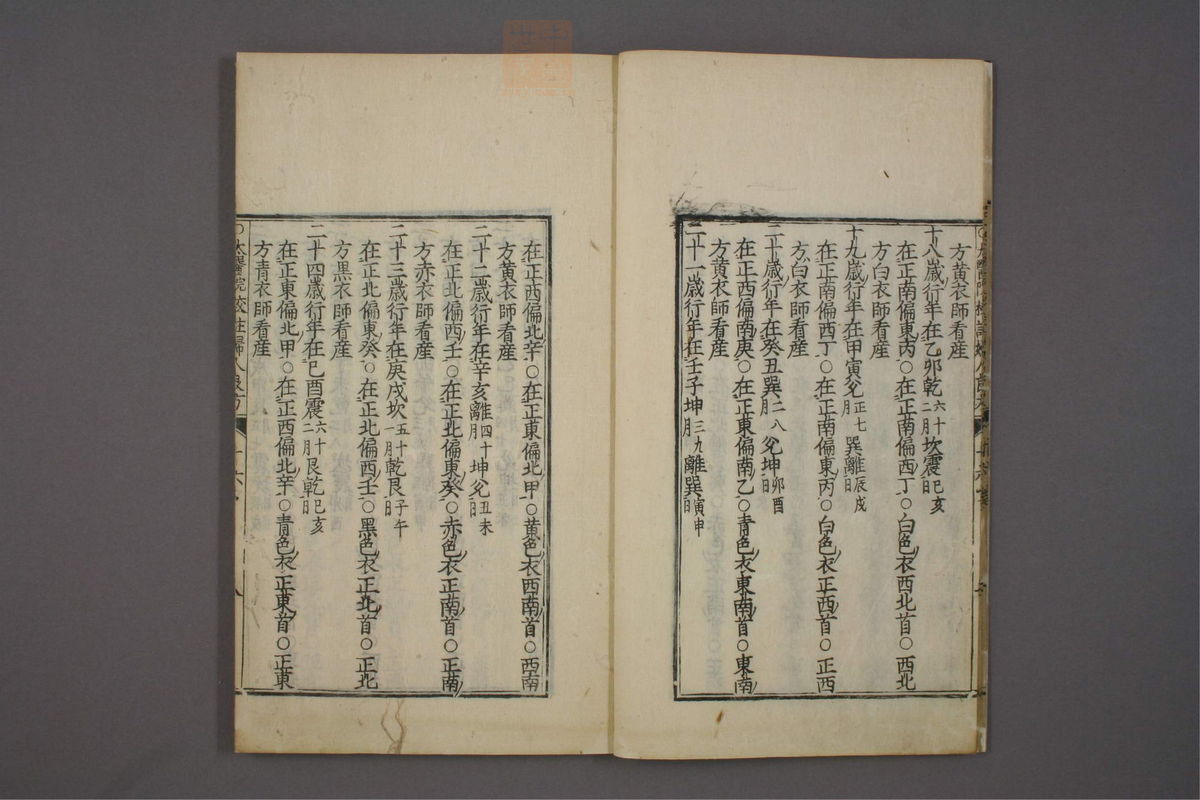 方黃衣師看産
十八歳行年在乙卯乾六十二月坎震巳亥日
在正南偏東丙○在正南偏西丁○白色衣西北首○西北
方白衣師看産
十九歳行年在甲寅兊正七月巽離辰戌日
在正南偏西丁○在正南偏東丙○白色衣正西首○正西
方白衣師看産
二十歳行年在癸丑巽二八月兊坤卯酉日
在正西偏南庚○在正東偏南乙○青色衣東南首○東南
方黃衣師看産
二十一歳行年在壬子坤三九月離巽寅申日
在正西偏北辛○在正東偏北甲○黃色衣西南首○西南
方黃衣師看産
二十二歳行年在辛亥離四十月坤兊丑未日
在正北偏西壬○在正北偏東癸○赤色衣正南首○正南
方赤衣師看産
二十三歳行年在庚戌坎五十一月乾艮子午日
在正北偏東癸○在正北偏西壬○黑色衣正北首○正北
方黑衣師看産
二十四歳行年在己酉震六十二月艮乾巳亥日
在正東偏北甲○在正西偏北辛○青色衣正東首○正東
方青衣師看産
○太醫院校註婦人良方